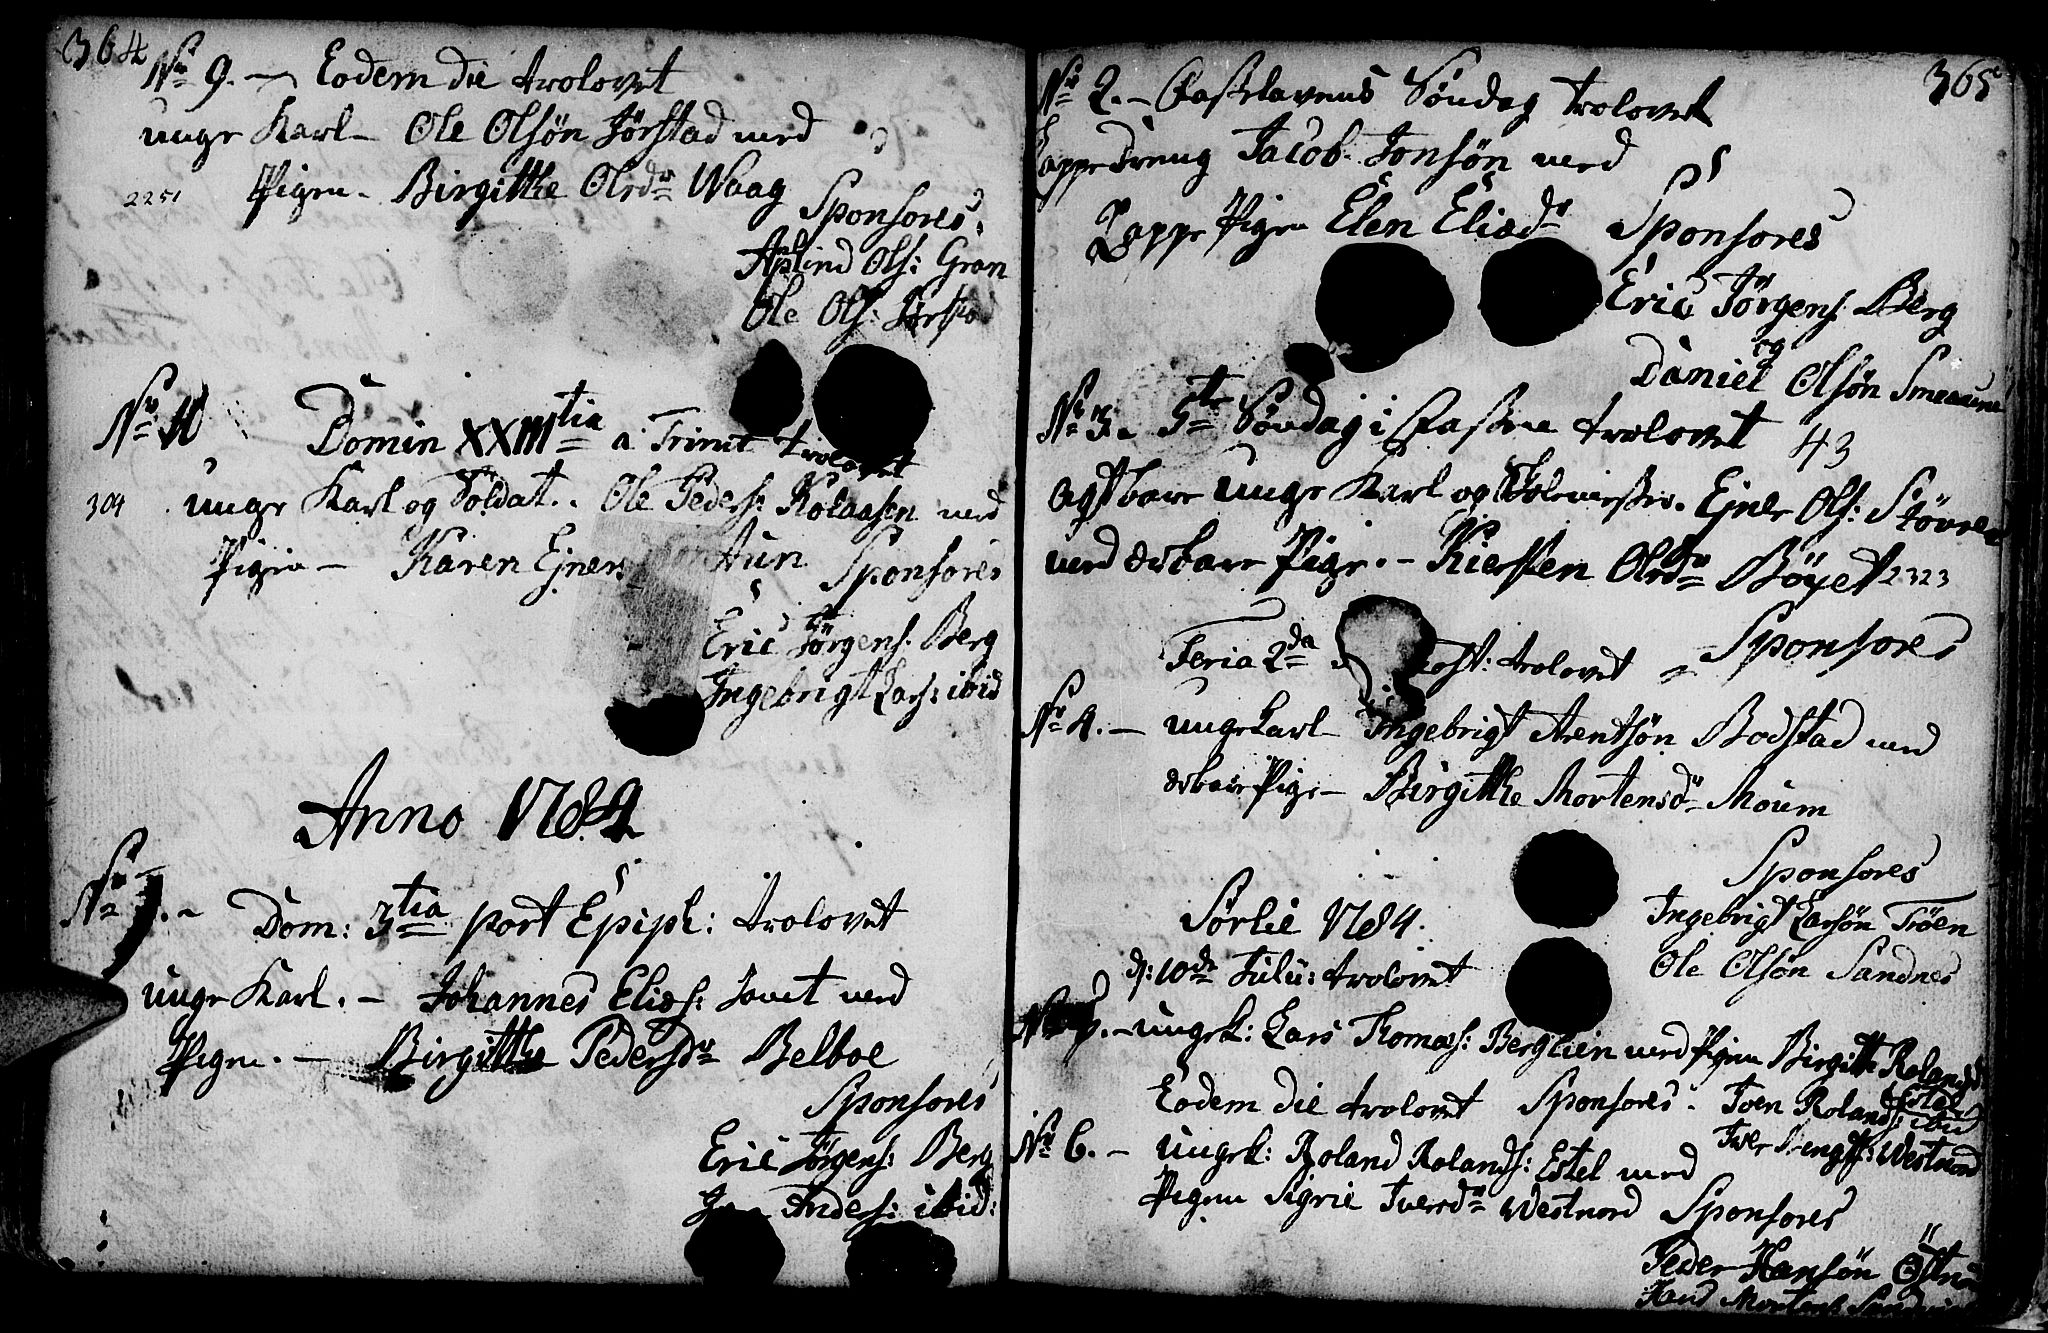 364
No 9. - Eodem die trolovet
unge Karl - Ole Olsön Jörstad med
2251 Pigen - Birgitthe Olesdr Waag
Sponsores
Ols: Gran
Ole Ols:
No 10 Domin XXIIItia a Trinit trolovet
304 unge Karl og Soldat. Ole Peders: Kolaasen med
Pigen - Karen Ejners Aun
Sponsores
Eric Jörgens: Berg
Ingebrigt Lars: ibid
Anno 1784
No 1. - Dom: 3tia post Epiph: trolovet
unge Karl. - Johannes Elies: med
Pigen. - Birgitthe Pedersdr Belboe
Sponsores
Eric Jörgens: Berg
Anders: ibid:
365
No 2. - Fastelavens Söndag trolovet
Lappe Dreng Jacob Jonsön med
Lappe Pigen Elen Eliedr
Sponsores
Eric Jörgens: Berg
og
Daniel Olsön
No 3. 5te Söndag i Faste trolovet 43
agtbare unge Karl og Skolemester. Ejner Ols: Stövre
med ærbare Pige. - Kiersten Olesdr Böyet 2323
Sponsores
Feria 2da trolovet
No 4. - unge Karl - Ingebrigt Arentsön Bodstad med
ærbare Pige - Birgitthe Mortensdr Moum
Sponsores
Ingebrigt Larsön Tröen
Ole Olsön Sandnes
Sörlie 1784.
d: 10de Julii: trolovet
No 5. - unge k: Lars Thomæs: Berglien med Pigen Birgitte Rolandsd
Estel
Eodem die trolovet Sponsores - Joen Rolands: ibid
Westnord
No 6. - unge k: Roland Rolands: Estel med
Pigen Sigrie Iversdr Westnord
Sponsores
Peder Hansön
Mortens